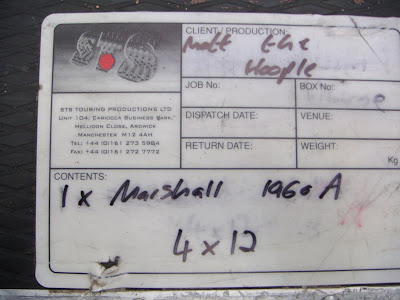 CLIENT / PRODUCTION:
Mott the
Hoople
JOB No:
BOX No:
DISPATCH DATE:
VENUE:
RETURN DATE:
WEIGHT:
Kg
STS TOURING PRODUCTIONS LTD
UNIT 104, CARIOCCA BUSINESS PARK,
HELLIDON CLOSE, ARDWICK
MANCHESTER M12 4AH
TEL: +44 (0)161 273 5984
FAX: +44 (0)161 272 7772
CONTENTS:
1 x Marshall 1960 A
4 x 12